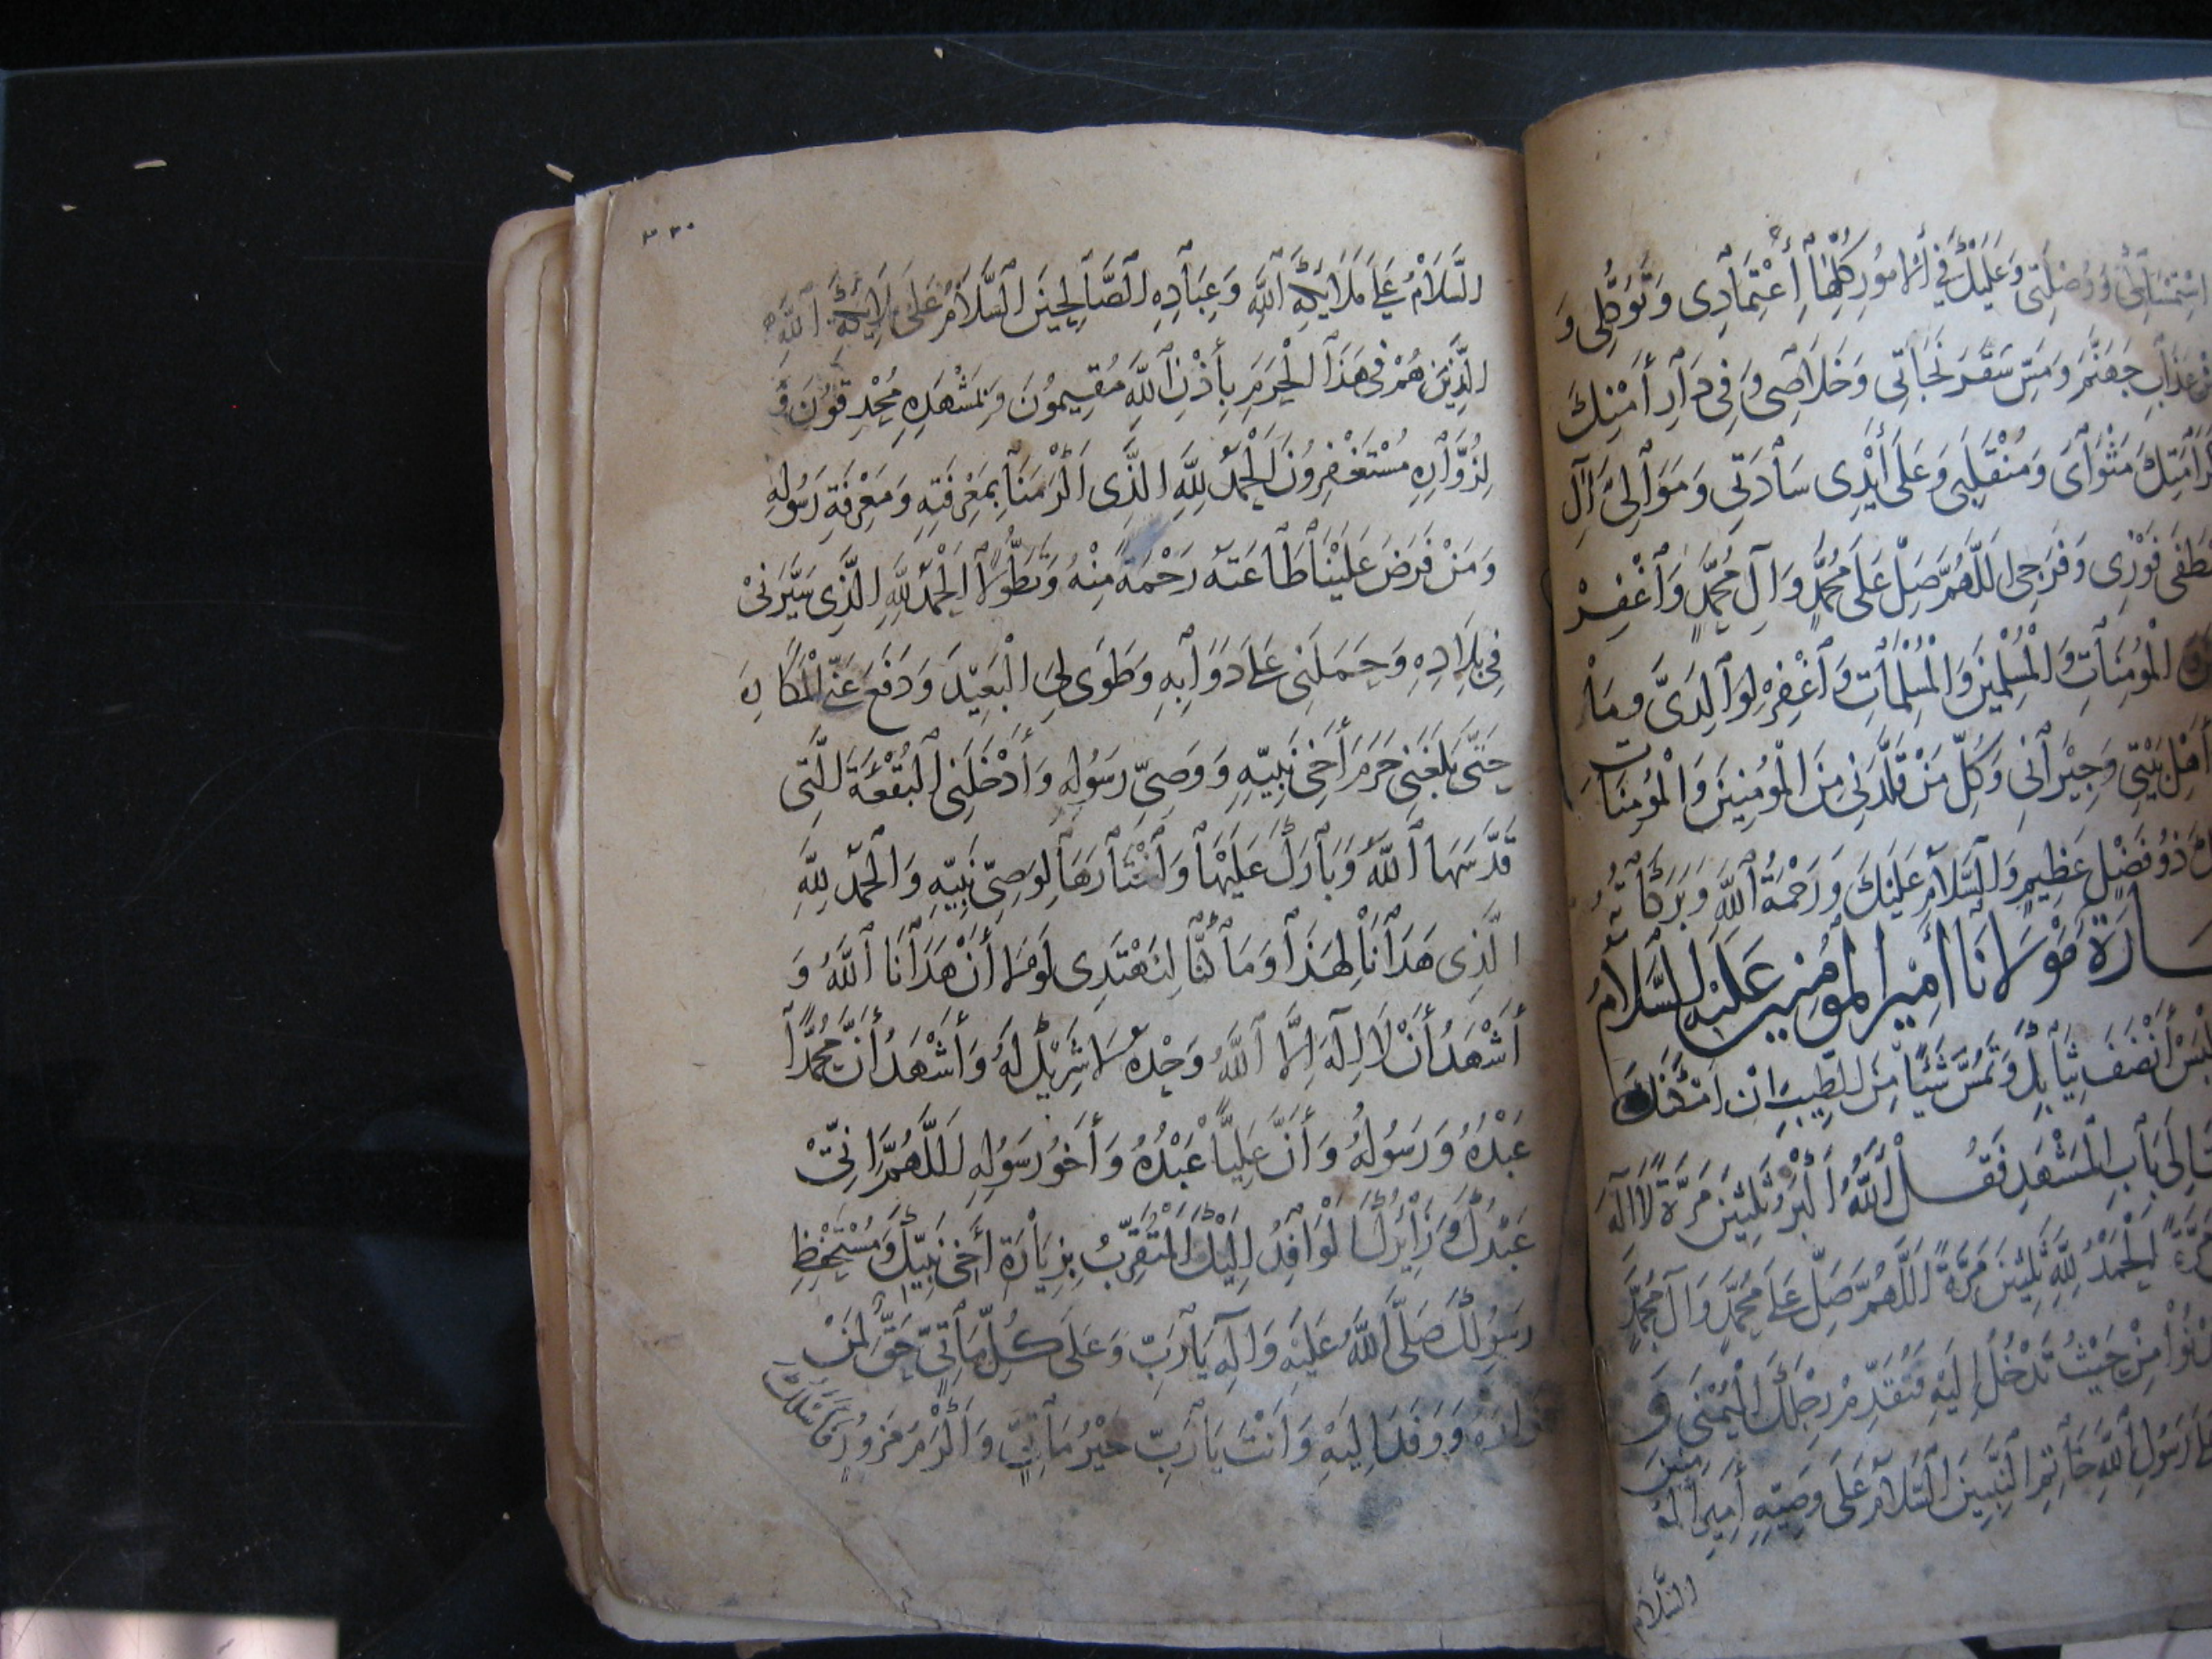 استمساكي ووصلتي وعليك في الامور كلها أعتمادى وتوكلى و
عذاب جهنم ومس سقر نجاتي وخلاصى وفى دار أمنك
كرامتك مثواى ومنقلبى وعلى أيدى ساداتى وموالى آل
فوزى وفرجى اللهم صل على محمد وآل محمد وأغفر
المؤمنات والمسلمين والمسلمات وأغفر لوالدى وما
أهل بيتي وجيرانى وكل من قلدنى من المؤمنين والمؤمنات
ذو فضل عظيم والسلام عليك ورحمة الله وبركاته
مولانا أمير المؤمنين عليه السلام
أنضف ثيابك وتمس شيئا من الطيب ان امكنك
باب المشهد فقل الله أكبر ثلثين مرة لا اله
مرة الحمد لله ثلثين مرة اللهم صل على محمد وآل محمد
من حيث تدخل اليه فتقدم رجلك اليمنى و
رسول الله خاتم النبيين السلام على وصيه أمير المؤمنين
السلام
٢٣٠
السلام على ملايكة الله وعباده الصالحين السلام على ملايكة الله
الذين هم فى هذا الحرم بأذن الله مقيمون وبمشهده محدقون و
لزواره مستغفرون الحمد لله الذى اكرمنا بمعرفته ومعرفة رسوله
ومن فرض علينا طاعته رحمة منه وتطولا الحمد لله الذى سيرنى
فى بلاده وحملنى على دوابه وطوى لى البعيد ودفع عنى المكاره
حتى بلغنى حرم أخى نبيه ووصى رسوله وأدخلنى البقعة التى
قدسها الله وبارك عليها وأختارها لوصى نبيه والحمد لله
الذى هدانا لهذا وما كنا لنهتدى لولا أن هدانا الله و
أشهد أن لا اله الا الله وحده لا شريك له وأشهد أن محمدا
عبده ورسوله وأن عليا عبده وأخو رسوله اللهم انى
عبدك وزايرك الوافد اليك المتقرب بزيارة أخى نبيك ومستحفظ
رسولك صلى الله عليه وآله يا رب وعلى كل مأتى حق لمن
زاره ووفد اليه وانت يا رب خير مأتى واكرم مزور فاسئلك